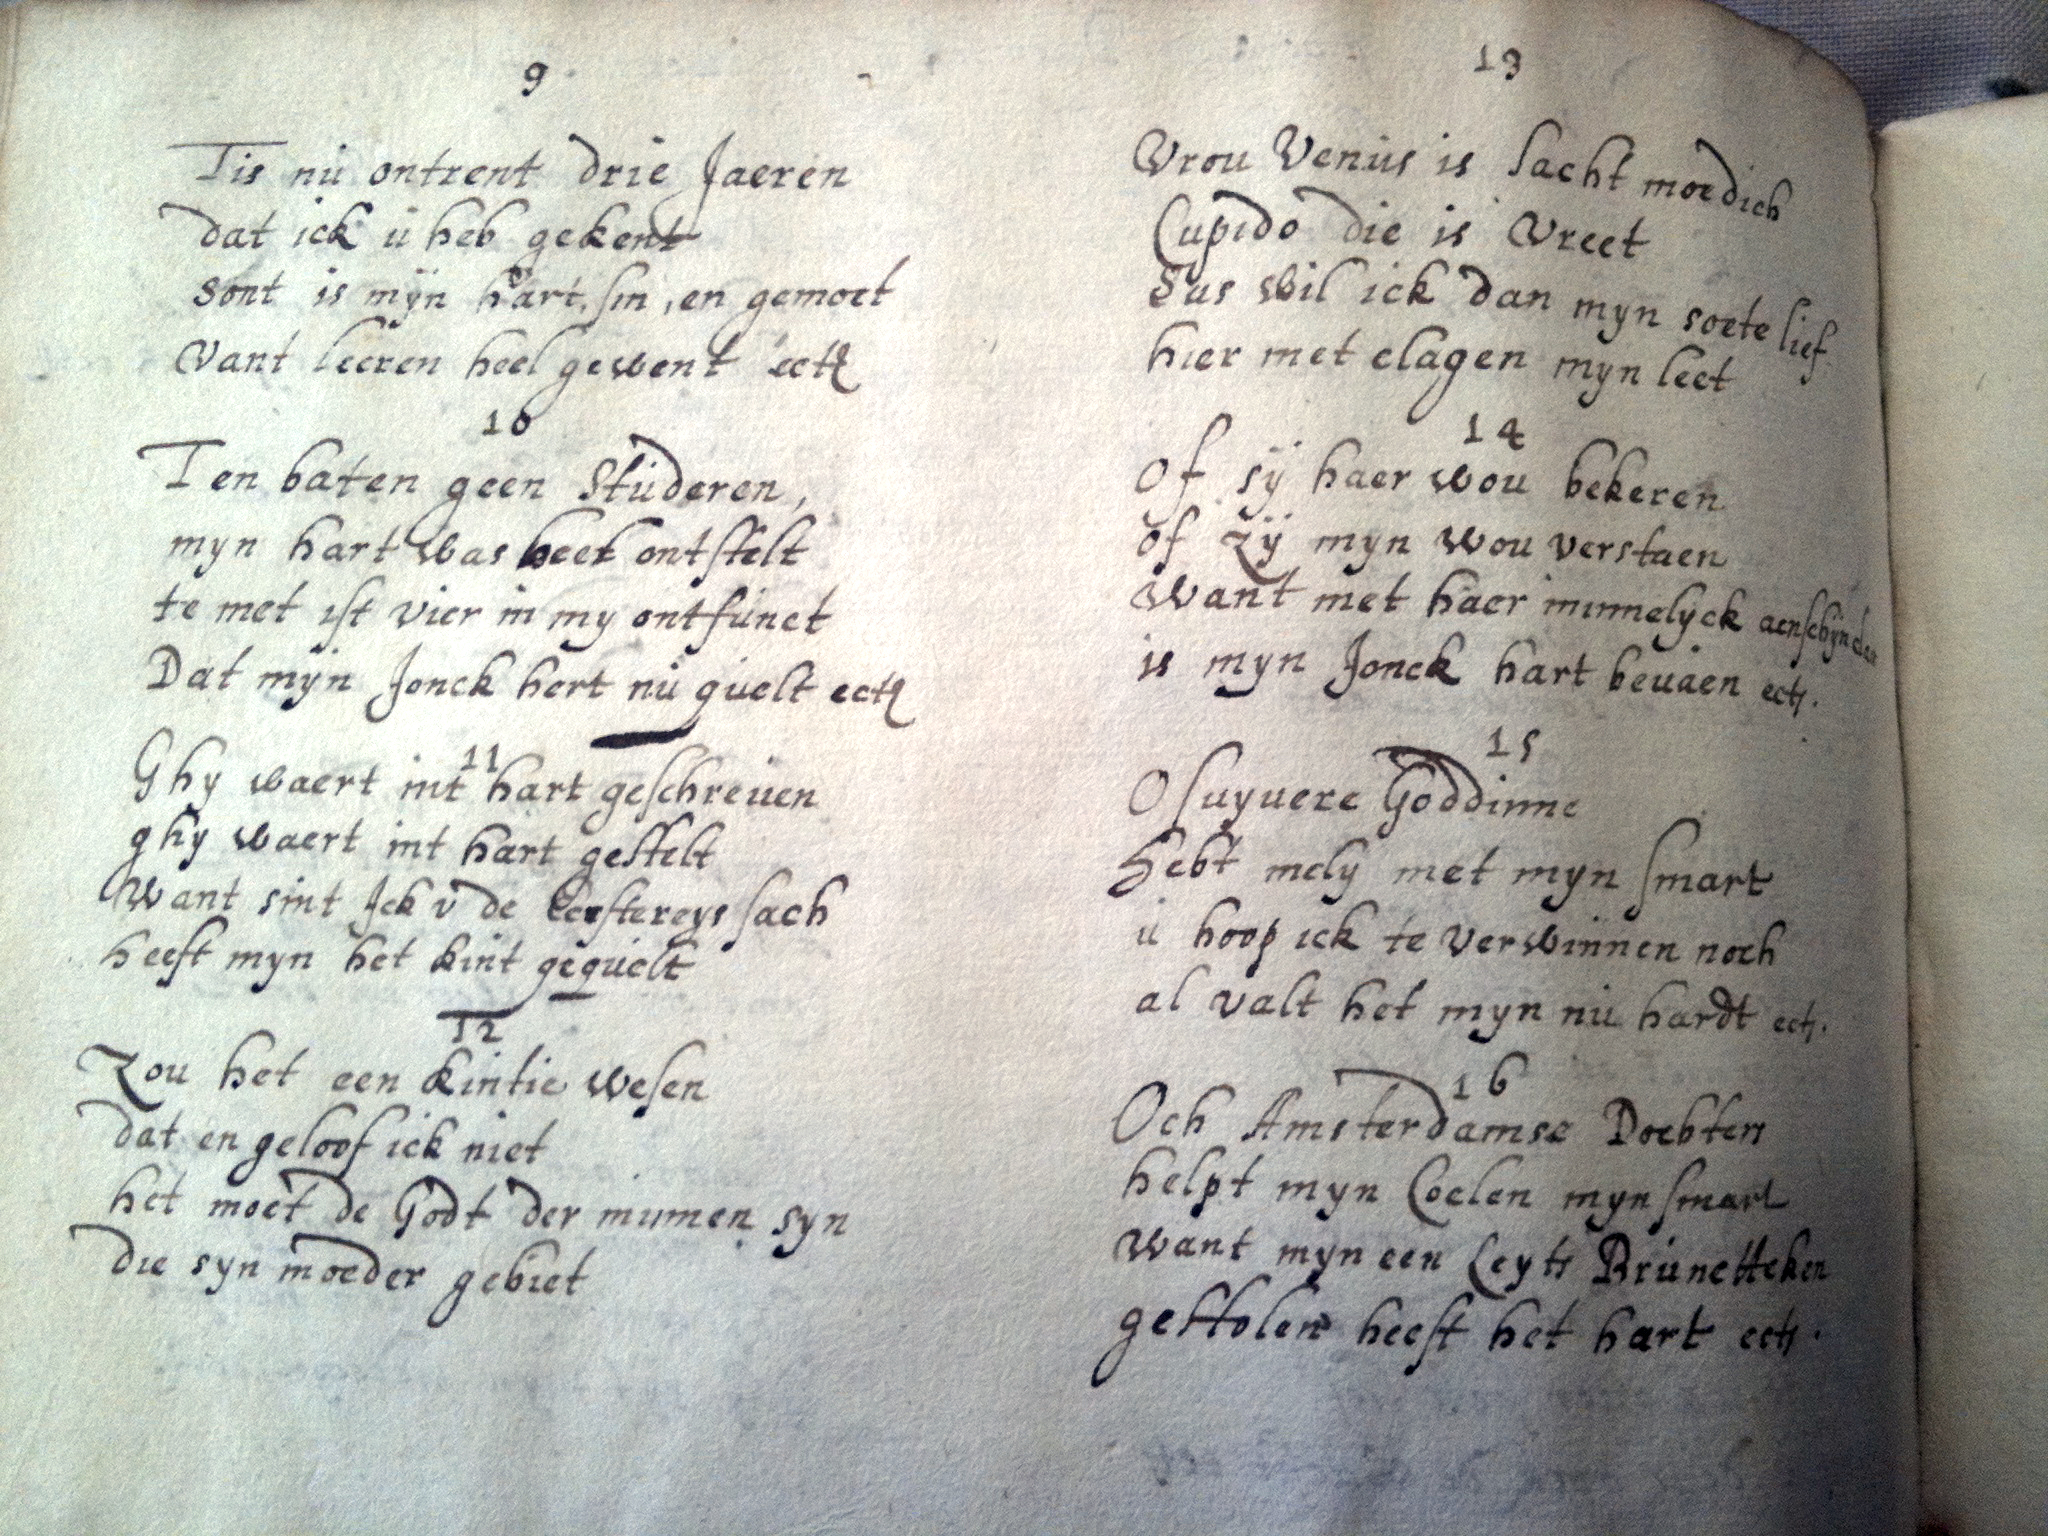 9
Tis nu ontrent drie Jaeren
dat ick u heb gekent
sont is mijn hart, sin, en gemoet
Vant leeren heel gewent ect
10
Ten baten geen Studeren,
myn hart was heel ontstelt
te met ist vier in my ontfunct
Dat mijn Jonck hert nu quelt ect
11
Ghy waert int hart geschreuen
ghy waert int hart gestelt
Want sint Jck v de Eerstereys sach
heeft myn het kint gequelt
12
Zou het een kintie wesen
dat en geloof ick niet
het moet de Godt der minnen syn
die syn moeder gebiet
13
Vrou Venus is sacht moedich
Cupido die is Vreet
Sus wil ick dan myn soete lief
hier met clagen myn leet
14
Of sij haer wou bekeren
of Zij myn wou verstaen
Want met haer minnelyck
is myn Jonck hart beuaen ect.
15
O suyuere Goddinne
Hebt mely met myn smart
u hoop ick te verwinnen noch
al valt het myn nu hardt ect.
16
Och Amsterdamse Dochters
helpt myn Coelen myn smart
Want myn een Leyts Brunetteken
gestolen heeft het hart ect.